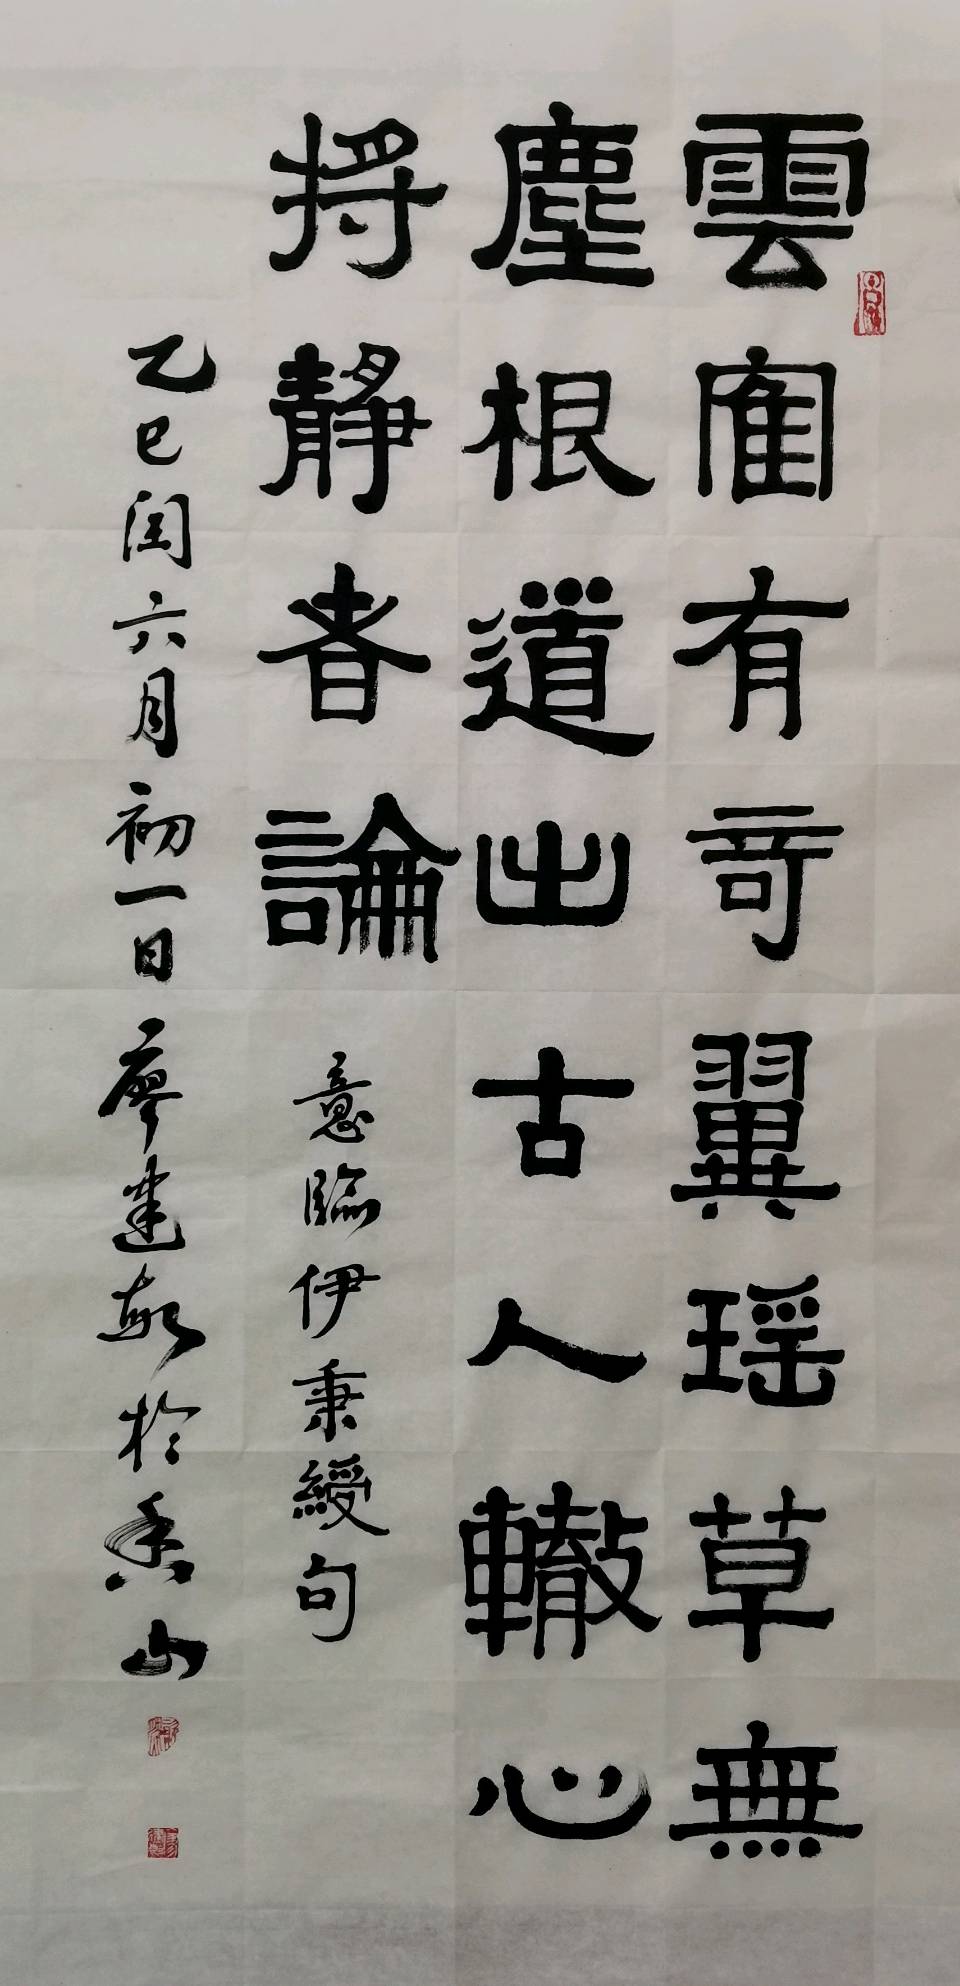 雲寉有奇翼瑶草無
塵根道出古人轍心
将靜者論
意臨伊秉綬句
乙巳閏六月初一日廖建毅於香山